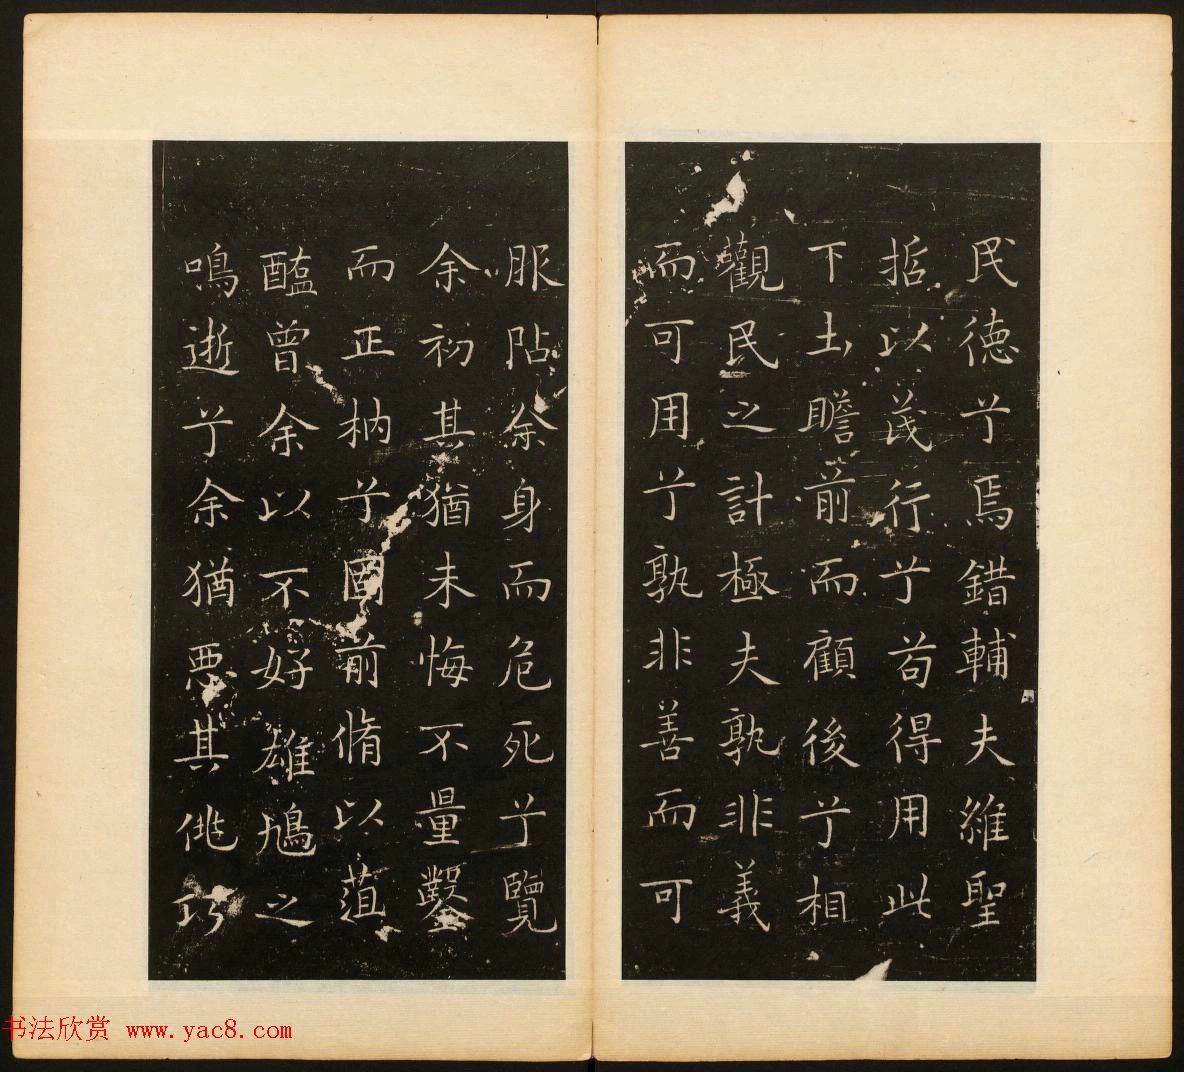 民徳兮焉錯輔夫維聖
哲以茂行兮苟得用此
下土瞻前而顧後兮相
觀民之計極夫孰非義
而可用兮孰非善而可
服阽余身而危死兮覽
余初其猶未悔不量鑿
而正枘兮固前脩以菹
醢曾余以不好雄鳩之
鳴逝兮余猶惡其佻巧
书法欣赏 www.yac8.com